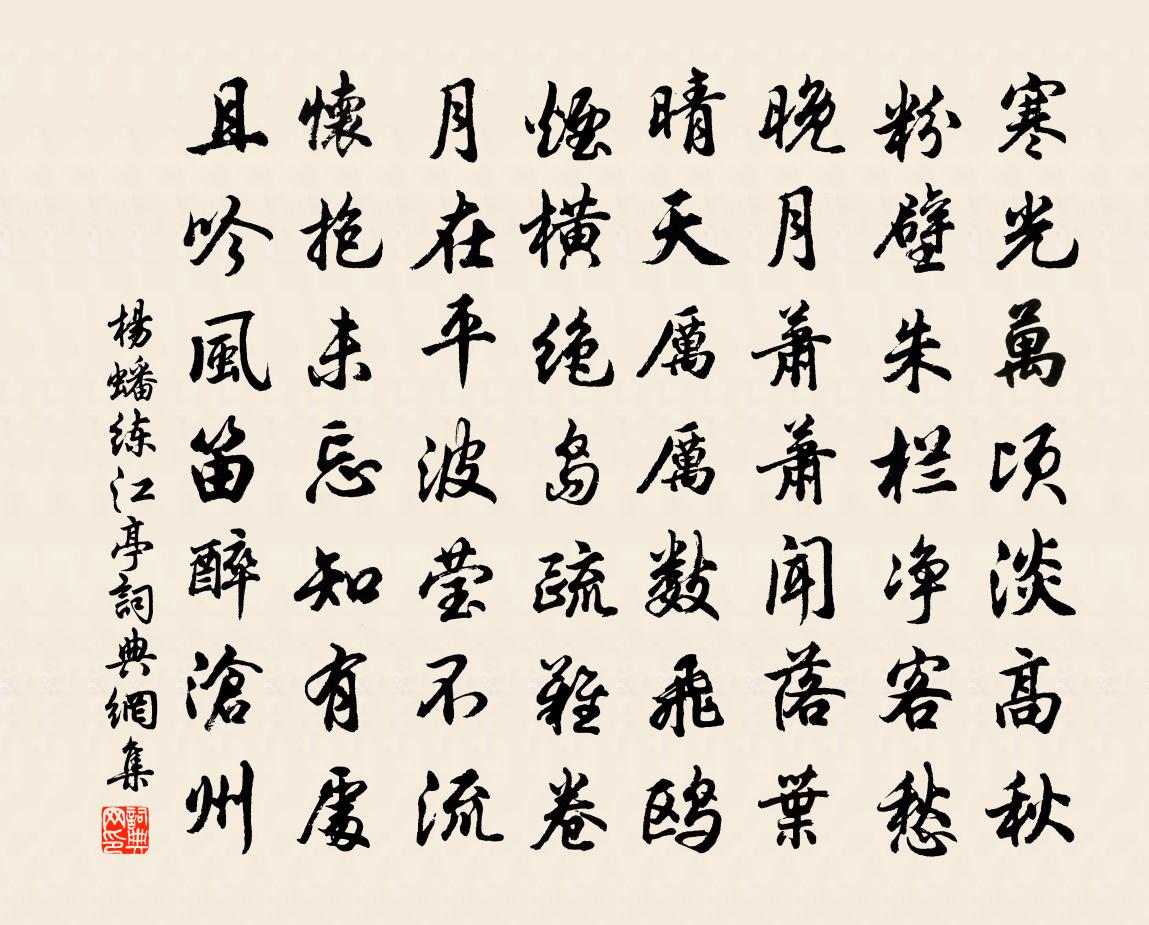 寒光萬頃淡高秋
粉壁朱栏净客愁
晚月蕭蕭聞落葉
晴天厲厲数飛鸥
煙橫绝岛疏難卷
月在平波莹不流
懷抱未忘知有處
且吟風笛醉滄州
楊蟠练江亭詞典網集
詞典网印